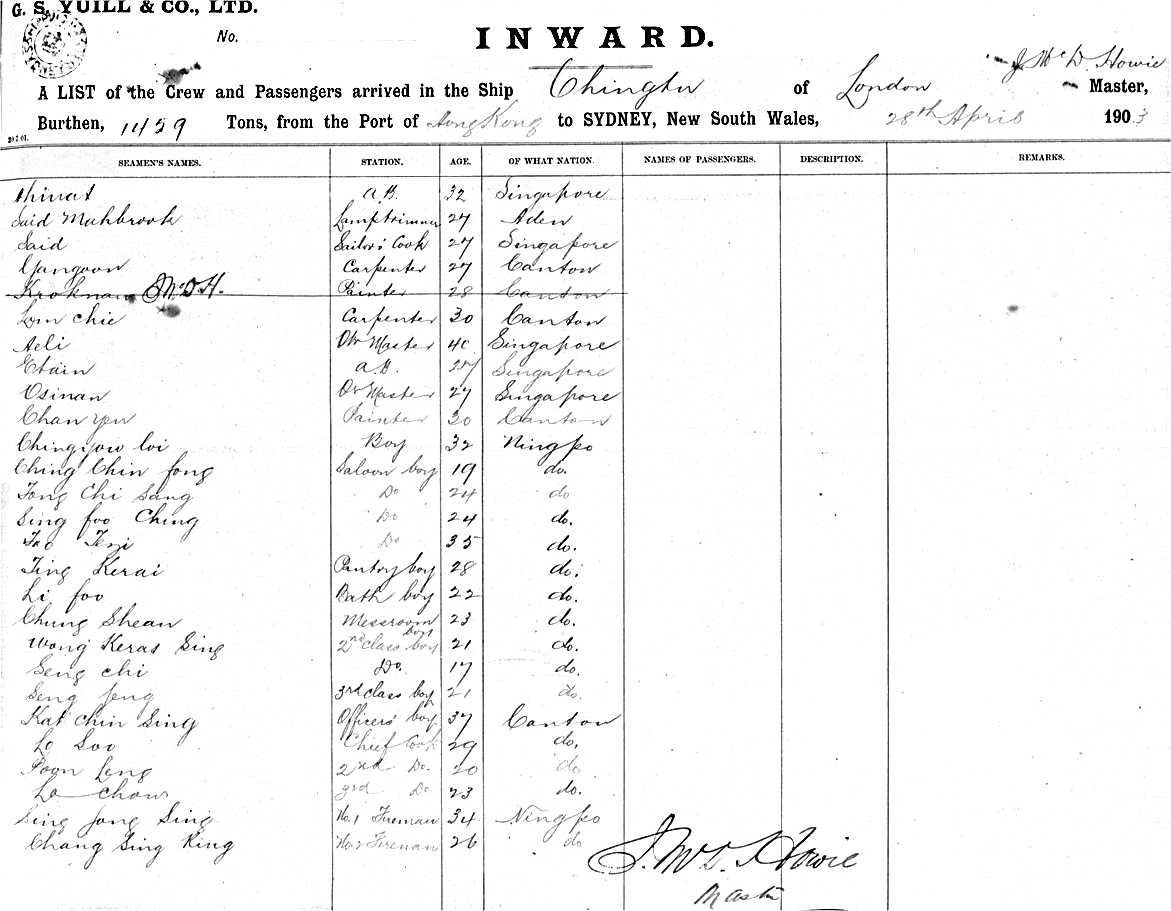 G. S. YUILL & CO., LTD.
No.
INWARD.
J. McD. Howie
A LIST of the Crew and Passengers arrived in the Ship Chingtu of London Master,
Burthen, 1459 Tons, from the Port of Hong Kong to SYDNEY, New South Wales, 28th April 1903
SEAMEN'S NAMES. STATION. AGE. OF WHAT NATION. NAMES OF PASSENGERS. DESCRIPTION. REMARKS.
A.B. 32 Singapore
Said Mahbrook Lamptrimmer 27 Aden
Said Sailors' Cook 27 Singapore
Yangoon Carpenter 27 Canton
McD H. Painter 28 Canton
Lom Chie Carpenter 30 Canton
Aeli Qr Master 40 Singapore
Etain A.B. 27 Singapore
Osinan Qr Master 27 Singapore
Chan yen Painter 30 Canton
loi Boy 32 Ningpo
Ching Chin fong Saloon boy 19 do.
Tong Chi Sang Do 24 do
Sing foo Ching Do 24 do.
Do 35 do.
Ting Kerai Pantry boy 28 do.
Li foo Bath boy 22 do.
Chung Shean Messroom boy 23 do.
Wong Keras Sing 2nd class boy 21 do.
Seng chi Do. 17 do.
Seng feng 3rd class boy 21 do.
Kat Chin Sing Officers' boy 37 Canton
Lo Soo Chief Cook 29 do.
Poon Leng 2nd Do. 20 do
Lo Chow 3rd Do 23 do.
Sing fong Sing No. 1 Fireman 34 Ningpo
Chang Sing King No. 2 Fireman 26 do
J. McD. Howie
Master